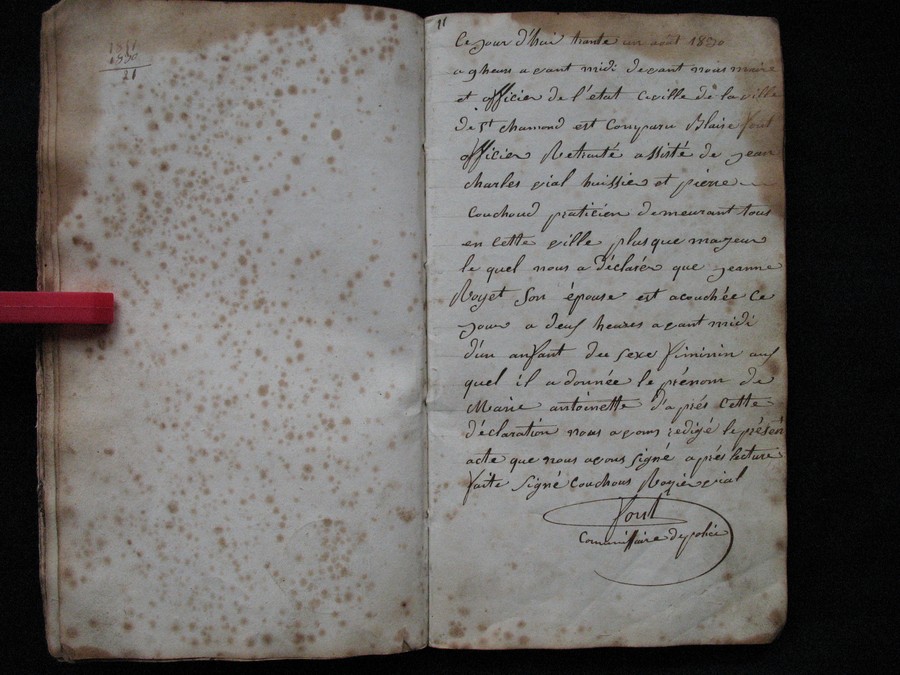 1851
1830
21
11
Ce jour d'hui trante un août 1830
a 9 heurs avant midi devant nous maire
et officier de l'état civille de la ville
de St chamond est Conparu Blaise font
officier Retraité assisté de jean
charles vial huissier et piérre
couchoud praticien demeurant tous
en cette ville plus que mageur
le quel nous a déclarér que jeanne
Royet son épouse est acouchée ce
jour a deux heures avant midi
d'un anfant du sexe féminin auf
quel il a donnée le prénom de
Marie antoinette d'aprés cette
déclaration nous avons redigé le présen
acte que nous avons signé aprés lecture
faite signé couchous Royier vial
font
Commissaire de police